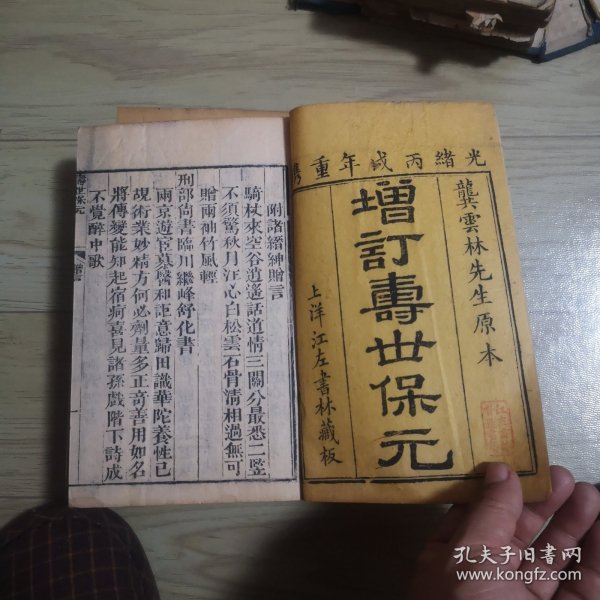 光緒丙戌年重鐫
龔雲林先生原本
增訂壽世保元
上洋江左書林藏板
附諸縉紳贈言
騎杖來空谷逍遙話道情三關分最悉二竪
不須驚秋月汪心白松雲石骨清相過無可
贈兩袖竹風輕
刑部尚書臨川繼峰舒化書
兩京遊宦慕醫和詎意歸田識華陀養性已
覘術業妙精方何必劑量多正奇善用如名
將傳變能知起宿疴喜見諸孫戲階下詩成
不覺醉中歌
壽世保元
孔夫子旧书网
www.kongfz.com